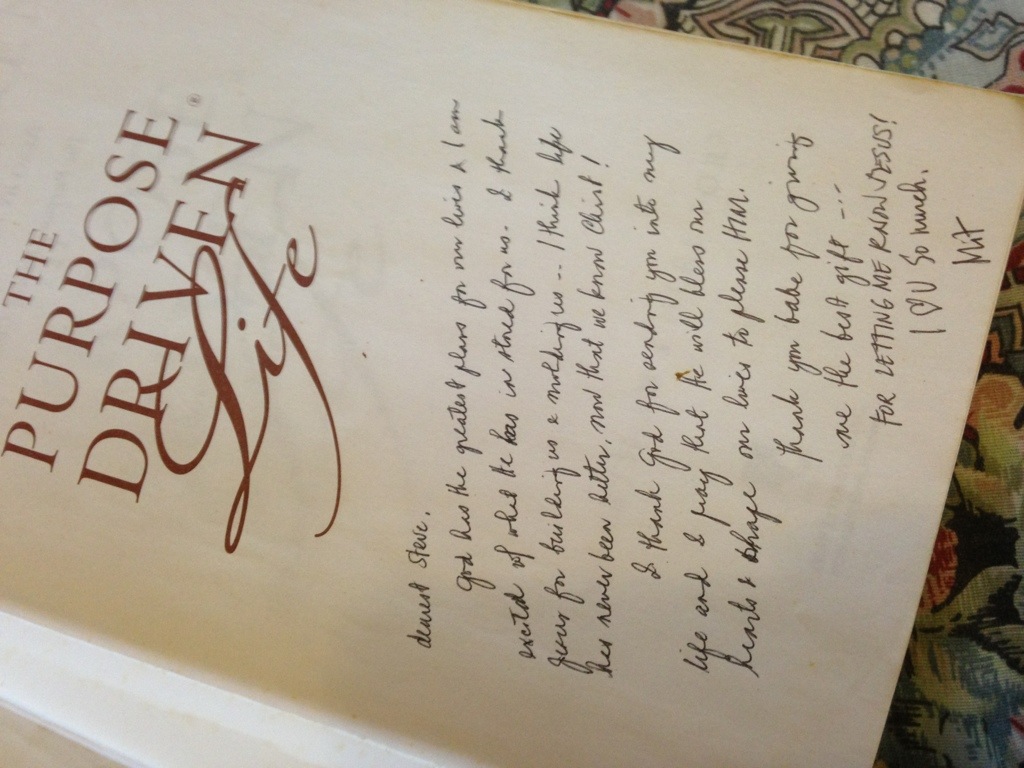 THE
PURPOSE
DRIVEN®
Life
dearest Steve,
God has the greatest plans for our lives & I am
excited of what He has in stored for us. I thank
Jesus for building us & molding us -- I think life
has never been better, now that we know Christ!
I thank God for sending you into my
life and I pray that He will bless our
hearts & shape our lives to please HIM.
Thank you babe for giving
me the best gift ---
FOR LETTING ME KNOW JESUS!
I ♡ U So much.